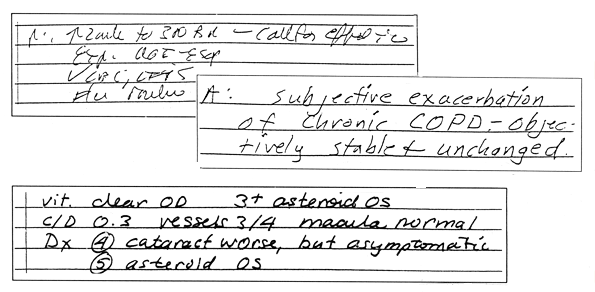 to 300 — call for
✓CBC,
A: subjective exacerbation
of chronic COPD - objec-
tively stable & unchanged.
vit. clear OD 3+ asteroid OS
C/D 0.3 vessels 3/4 macula normal
Dx ④ cataract worse, but asymptomatic
⑤ asteroid OS